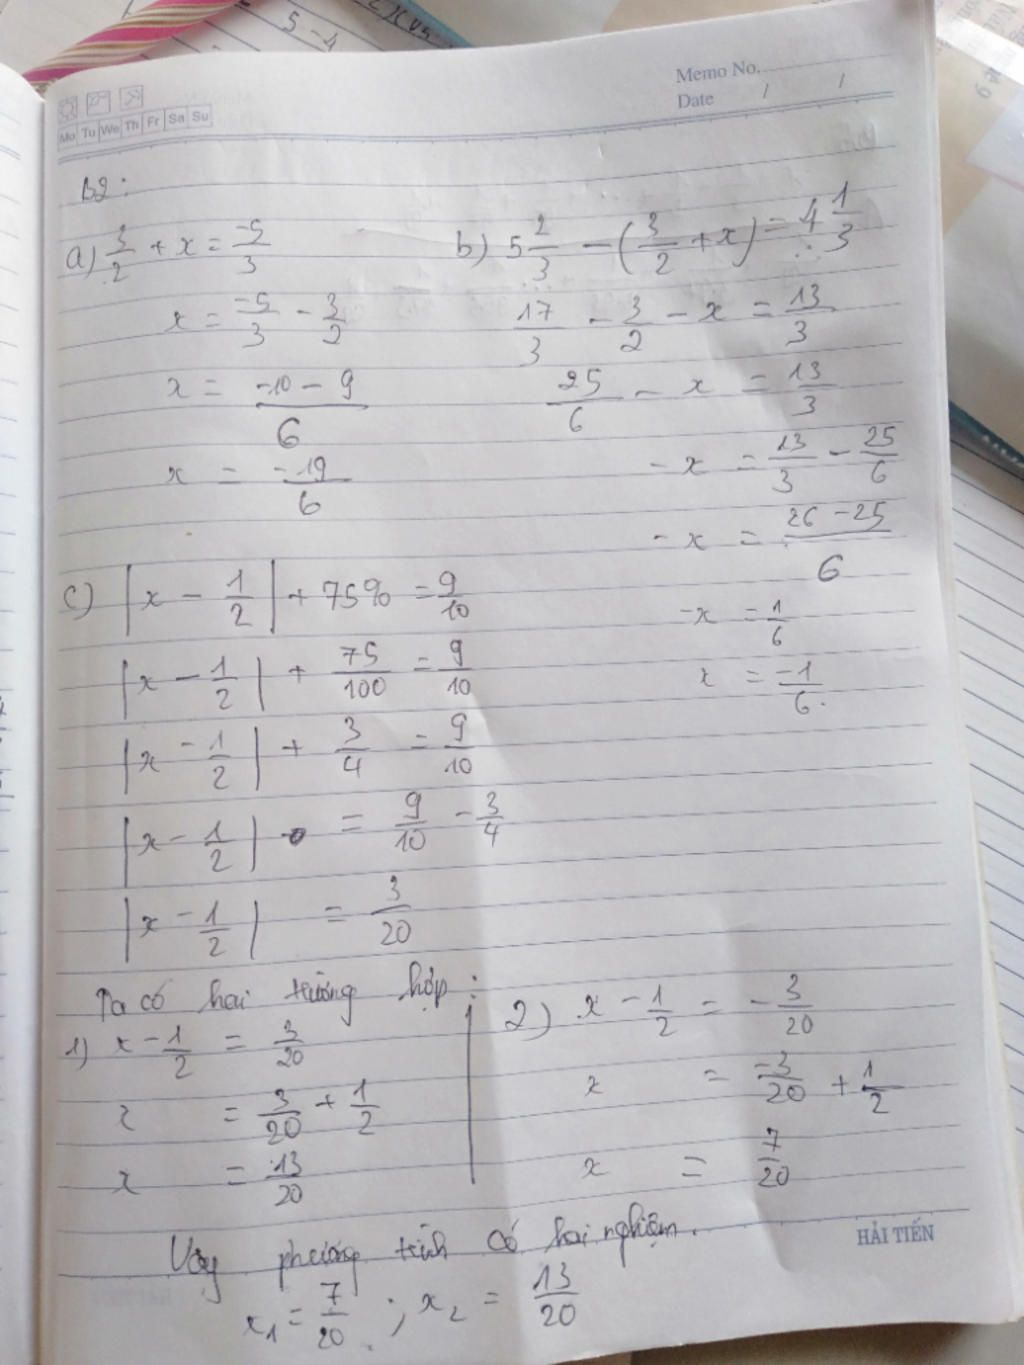 Memo No.
Date / /
Mo Tu We Th Fr Sa Su
B2:
a) 3/2 + x = -5/3
x = -5/3 - 3/2
x = (-10 - 9)/6
x = -19/6
b) 5 2/3 - (3/2 + x) = 4 1/3
17/3 - 3/2 - x = 13/3
25/6 - x = 13/3
- x = 13/3 - 25/6
- x = (26 - 25)/6
-x = 1/6
x = -1/6.
c) |x - 1/2| + 75% = 9/10
|x - 1/2| + 75/100 = 9/10
|x - 1/2| + 3/4 = 9/10
|x - 1/2| = 9/10 - 3/4
|x - 1/2| = 3/20
Ta có hai trường hợp:
1) x - 1/2 = 3/20
x = 3/20 + 1/2
x = 13/20
2) x - 1/2 = - 3/20
x = -3/20 + 1/2
x = 7/20
Vậy phương trình có hai nghiệm.
x1 = 7/20 ; x2 = 13/20
HẢI TIẾN